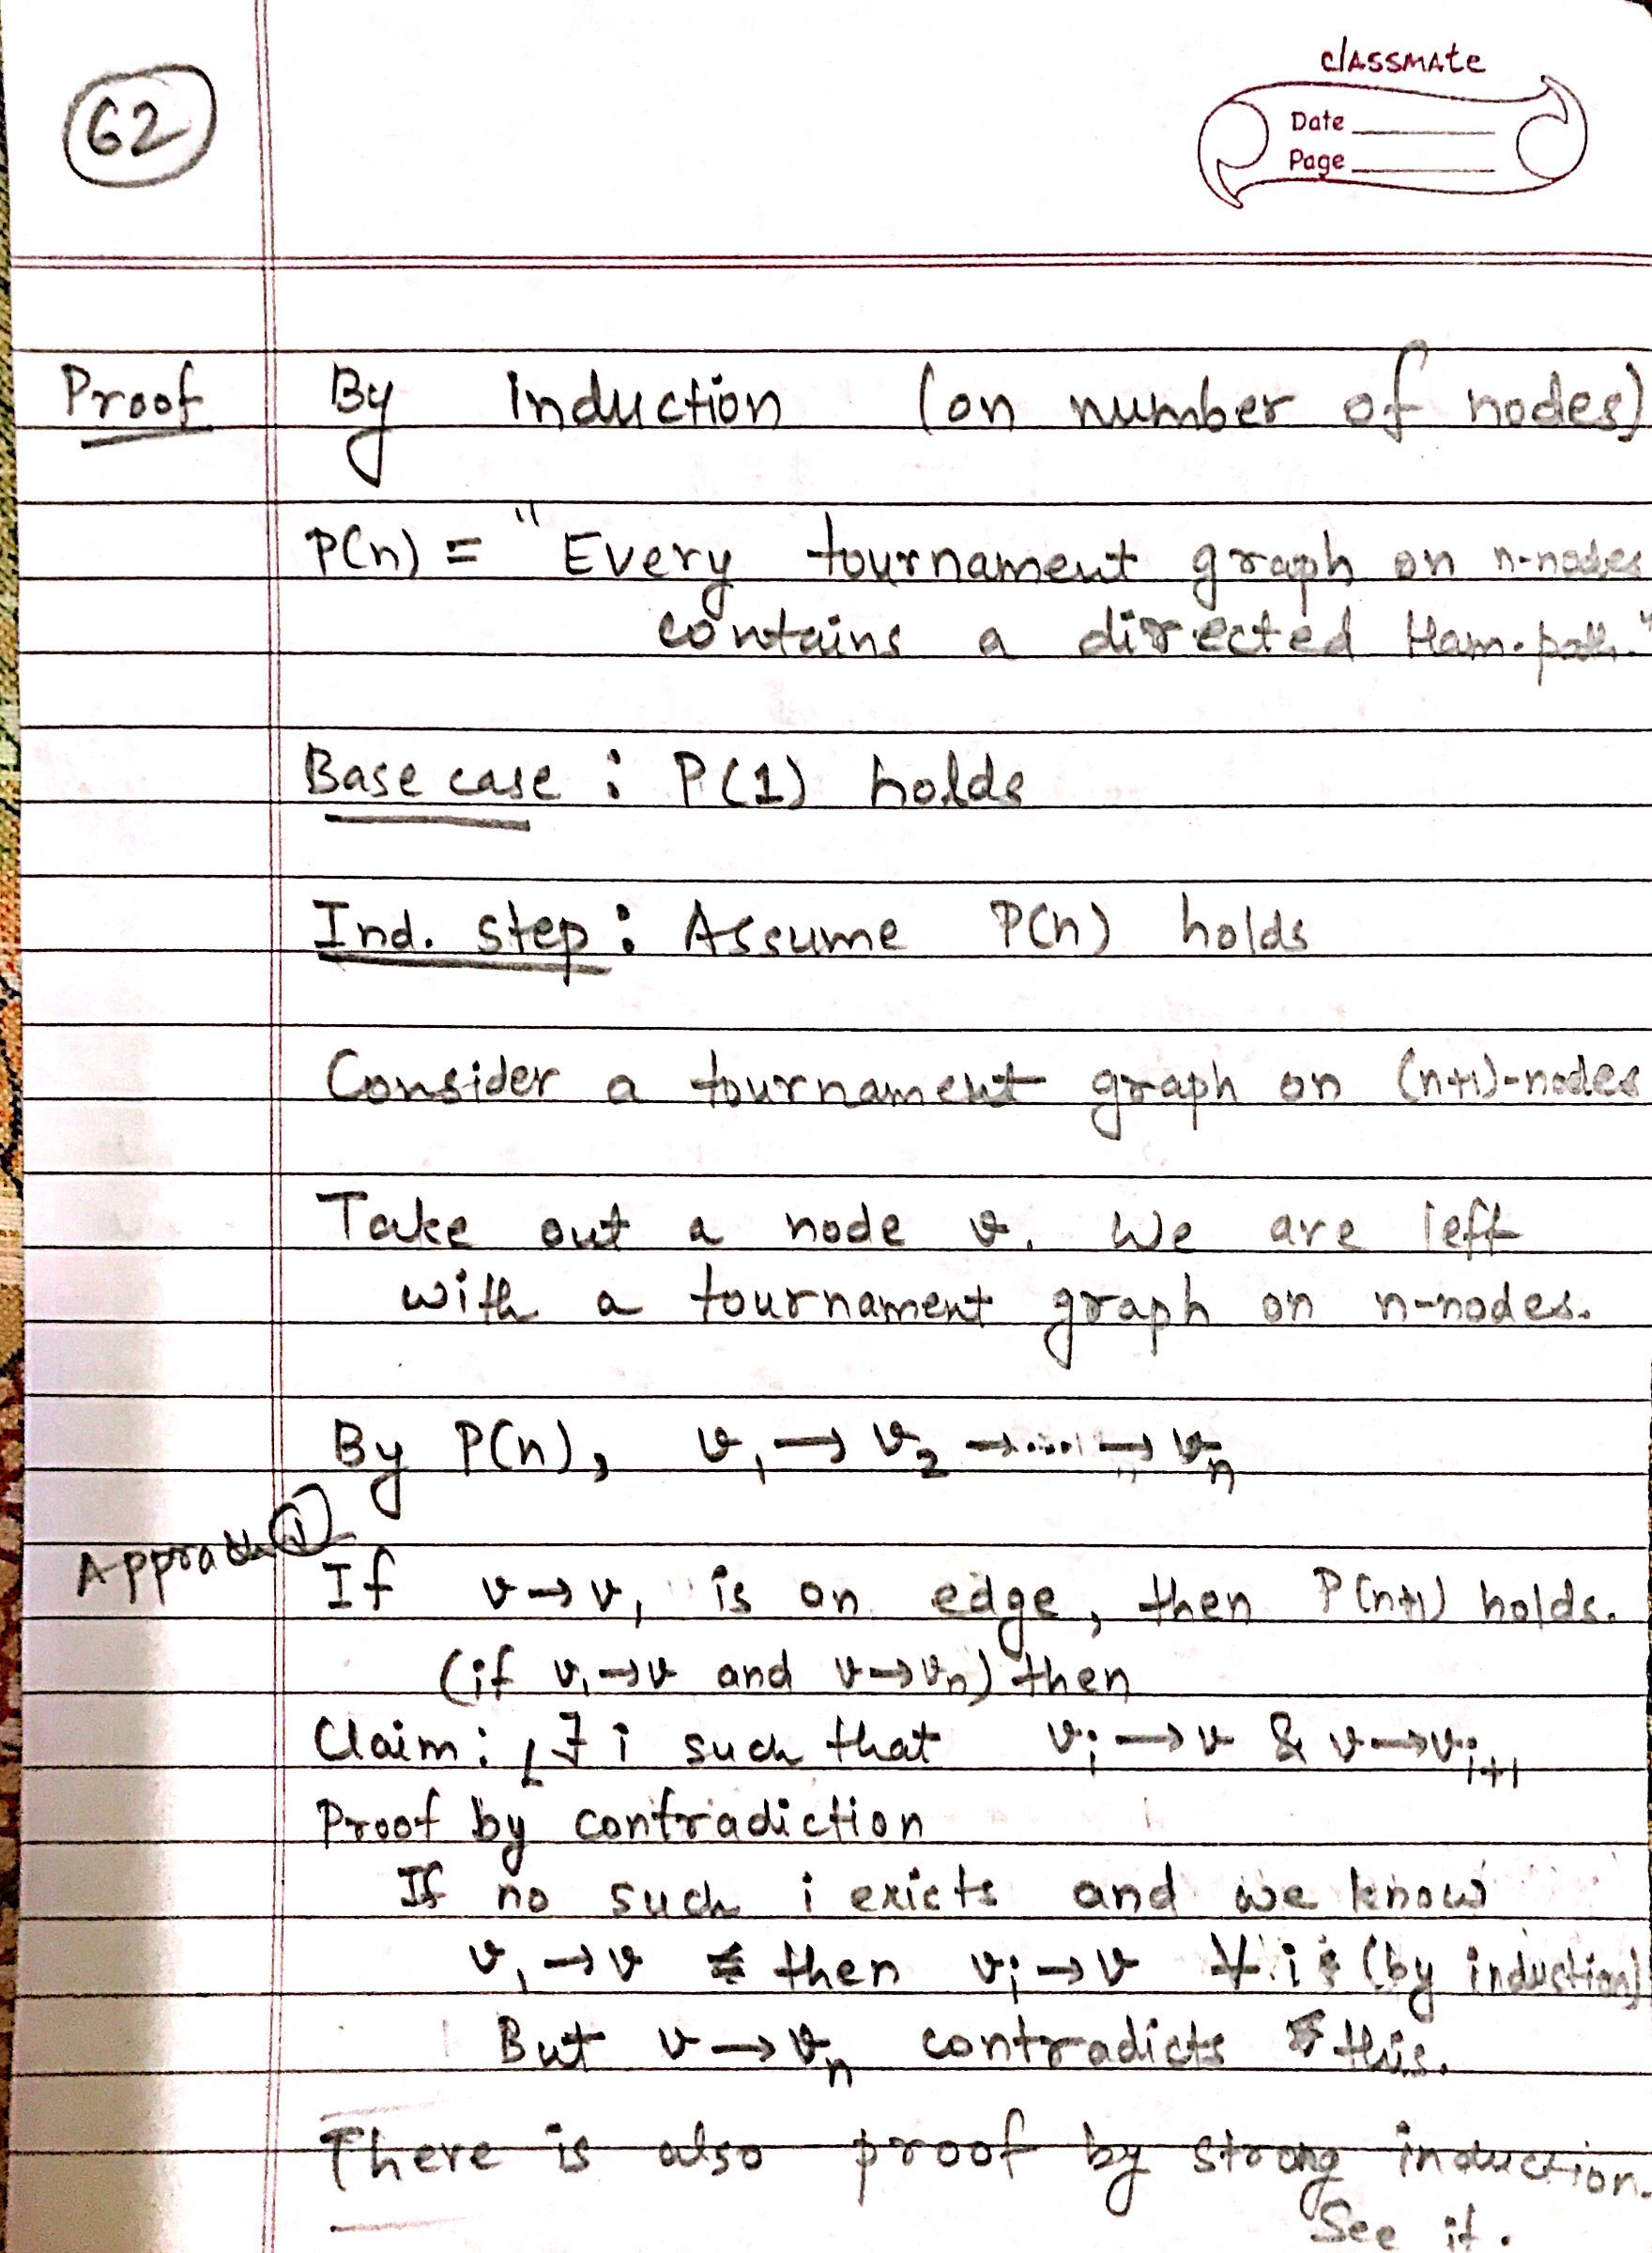 classmate
Date
Page
62
Proof By induction (on number of nodes)
P(n) = "Every tournament graph on n-nodes
contains a directed Ham. path."
Base case : P(1) holds
Ind. step : Assume P(n) holds
Consider a tournament graph on (n+1)-nodes
Take out a node v. We are left
with a tournament graph on n-nodes.
By P(n), v₁ → v₂ → .... → vₙ
①
If v → v₁ is an edge, then P(n+1) holds.
(if v₁ → v and v → vₙ) then
Claim : ∃ i such that vᵢ → v & v → vᵢ₊₁
Proof by contradiction
If no such i exicts and we know
v₁ → v then vᵢ → v ∀ i (by induction)
But v → vₙ contradicts this.
There is also proof by strong induction.
See it.